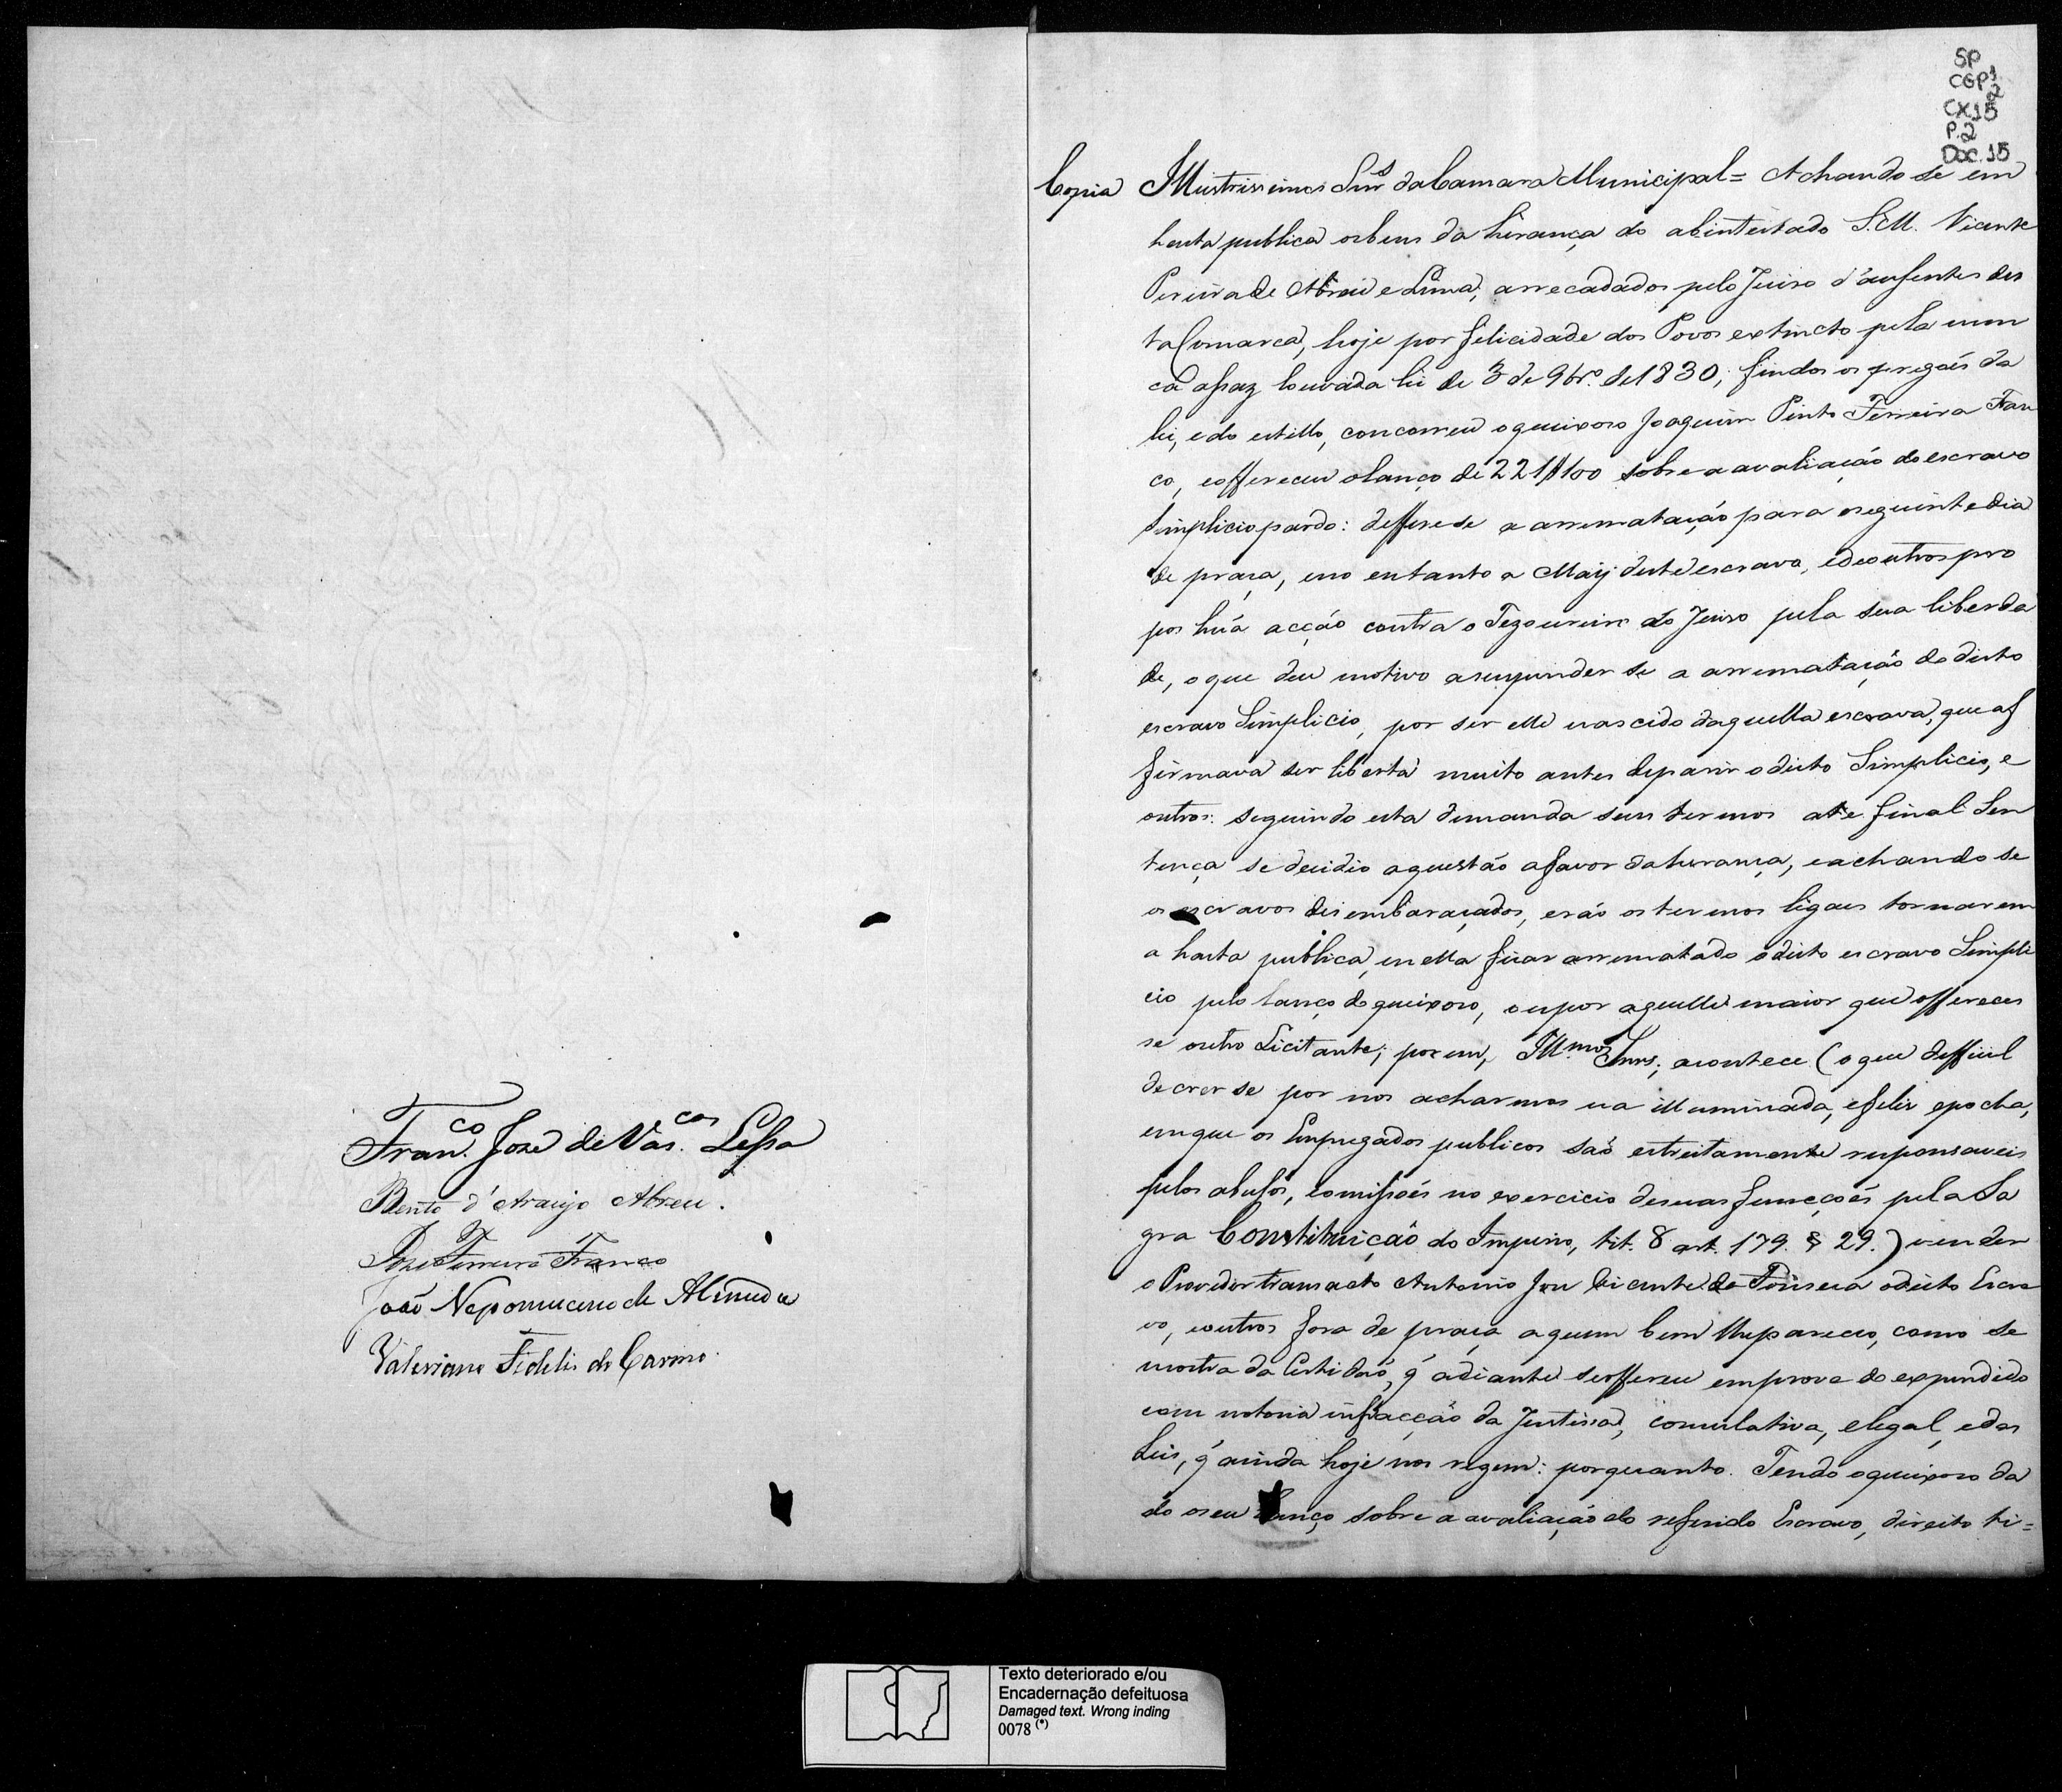 Fran.co Joze de Vas.cos Lessa
Bento d'Araujo Abreu.
Joze Ferreira Franco
João Nepomuceno de Almeida
Valeriano Fidelis do Carmo.
SP
CGP1
2
CX15
P.2
DOC.15
Copia Illustrissimos Snrs da Camara Municipal = Achando se em
hasta publica os bens da herança do abintestado S.M. Vicente
Pereira de Abreu e Lima, arrecadados pelo Juiso d'ausentes des
ta Comarca, hoje por felicidade dos Povos extincto pela nun
ca assaz louvada lei de 3 de 9br.º de 1830; findos os pregoés da
lei, e do estillo, concorreu o queixoso Joaquim Pinto Ferreira Fran
co, e offereceu o lanço de 221$100 sobre a avaliação do escravo
Simplicio pardo: deffere se a arrematação para o seguinte dia
de praça, e no entanto a Maÿ deste escravo, e de outros pro
pos huá acção contra o Tezoureiro do Juiso pela sua liberda
de, o que deu motivo a suspender se a arrematação do dicto
escravo Simplicio, por ser elle nascido daquella escrava, que af
firmava ser liberta muito antes de parir o dicto Simplicio, e
outros: seguindo esta demanda seus termos até final Sen
tença se decidio a questão a favor da herança, e achando se
os escravos desembaraçados, erão os termos ligaes tornarem
a hasta publica, e nella ficar arrematado o dicto escravo Simpli
cio pelo lanço do queixoso, ou por aquelle maior que offereces
se outro Licitante; porem, Ill.mos Snrs, acontece (o que deffícil
de crer se por nos acharmos na illuminada, e feliz epocha,
em que os Empregados publicos saó estreitamente responsaveis
pelos abusos, e omissoés no exercicio de suas funcçoés pela Sa
gra Constituição do Imperio, tit. 8 art. 179. § 29.) vender
o Provedor transacto Antonio Joze Vicente da Fonseca o dicto Escra
vo, e outros fora de praça a quem bem lhe pareceo, como se
mostra da Certidaó, q̃ adiante se offerece em prova do expendido
com notoria infracção da Justissa, comulativa, e legal, e das
Leis, q̃ ainda hoje nos regem: porquanto. Tendo o queixoso da
do o seu lanço sobre a avaliação do referido Escravo, direito ti=
Texto deteriorado e/ou
Encadernação defeituosa
Damaged text. Wrong inding
0078 (*)